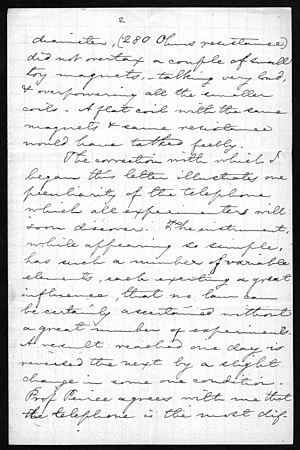 2
diameter, (280 Ohms resistance)
did not overtax a couple of small
toy magnets, - talking very loud,
& overpowering all the smaller
coils. A flat coil with the same
magnets & same resistance
would have talked feebly.
The correction with which I
began this letter illustrates one
peculiarity of the telephone
which all experimenters will
soon discover. The instrument,
while appearing so simple,
has such a number of variable
elements, each exerting a great
influence, that no law can
be certainly ascertained without
a great number of experiments.
A result reached one day is
reversed the next by a slight
change in some one condition.
Prof Peirce agrees with me that
the telephone is the most dif-